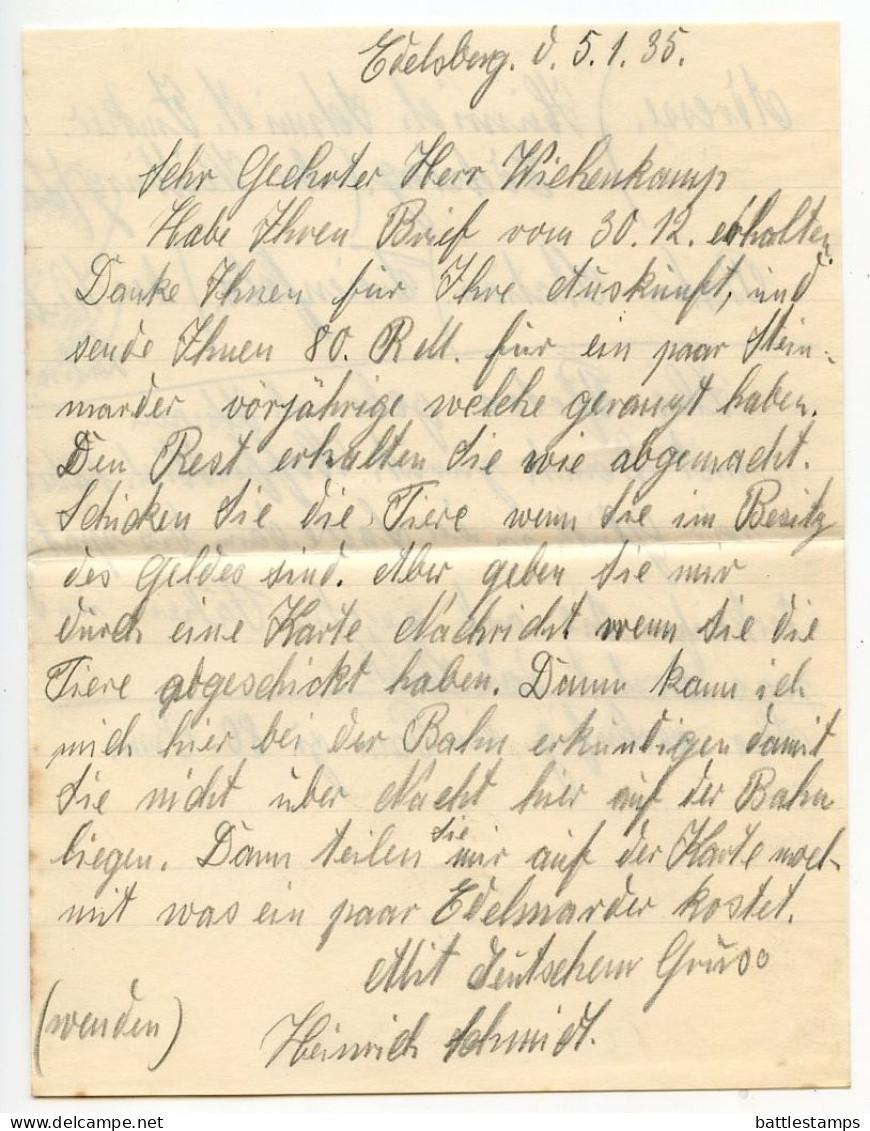 Edelsberg. d. 5.1.35.
Sehr Geehrter Herr Wiehenkamp
Habe Ihren Brief vom 30.12. erhalten.
Danke Ihnen für Ihre Auskunft, und
sende Ihnen 80. RM. für ein paar Stein-
marder vorjährige welche geranzt haben.
Den Rest erhalten Sie wie abgemacht.
Schicken Sie die Tiere wenn Sie im Besitz
des Geldes sind. Aber geben Sie mir
durch eine Karte Nachricht wenn Sie die
Tiere abgeschickt haben. Dann kann ich
mich hier bei der Bahn erkundigen damit
Sie nicht über Nacht hier auf der Bahn
liegen. Dann teilen Sie mir auf der Karte
mit was ein paar Edelmarder kostet.
Mit deutschem Gruss
(wenden) Heinrich Schmidt.
delcampe.net
battlestamps